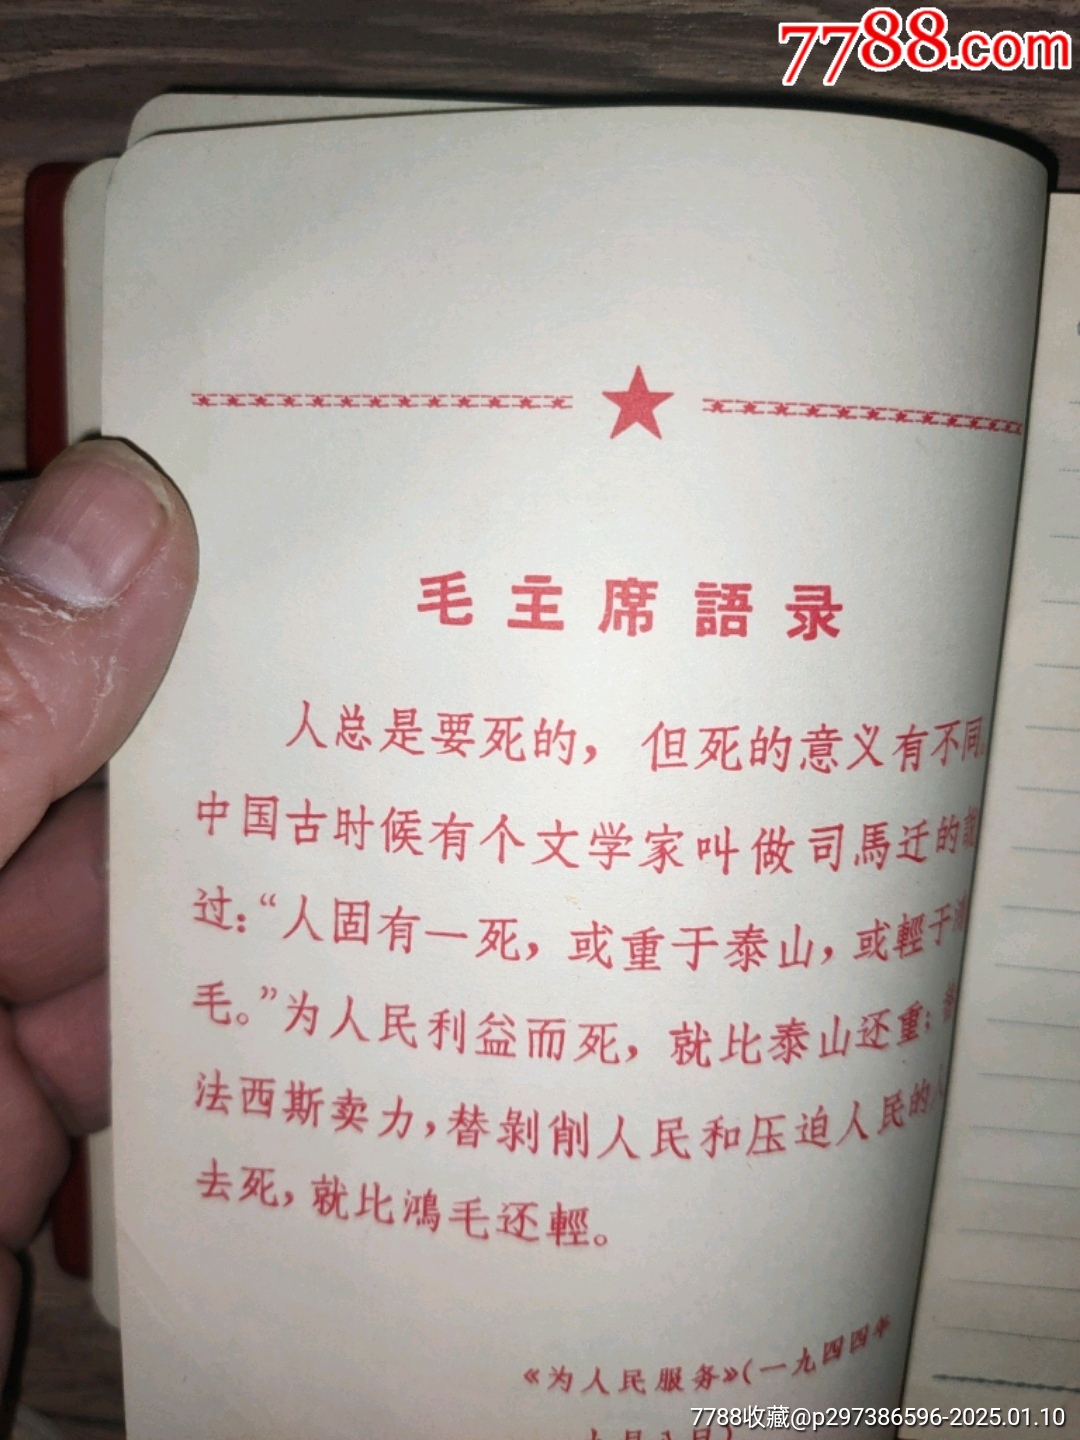 7788.com
毛主席語录
人总是要死的，但死的意义有不同。
中国古时候有个文学家叫做司馬迁的說
过：“人固有一死，或重于泰山，或輕于鴻
毛。”为人民利益而死，就比泰山还重；替
法西斯卖力，替剥削人民和压迫人民的人
去死，就比鴻毛还輕。
《为人民服务》（一九四四年
九月八日）
7788收藏@p297386596-2025.01.10